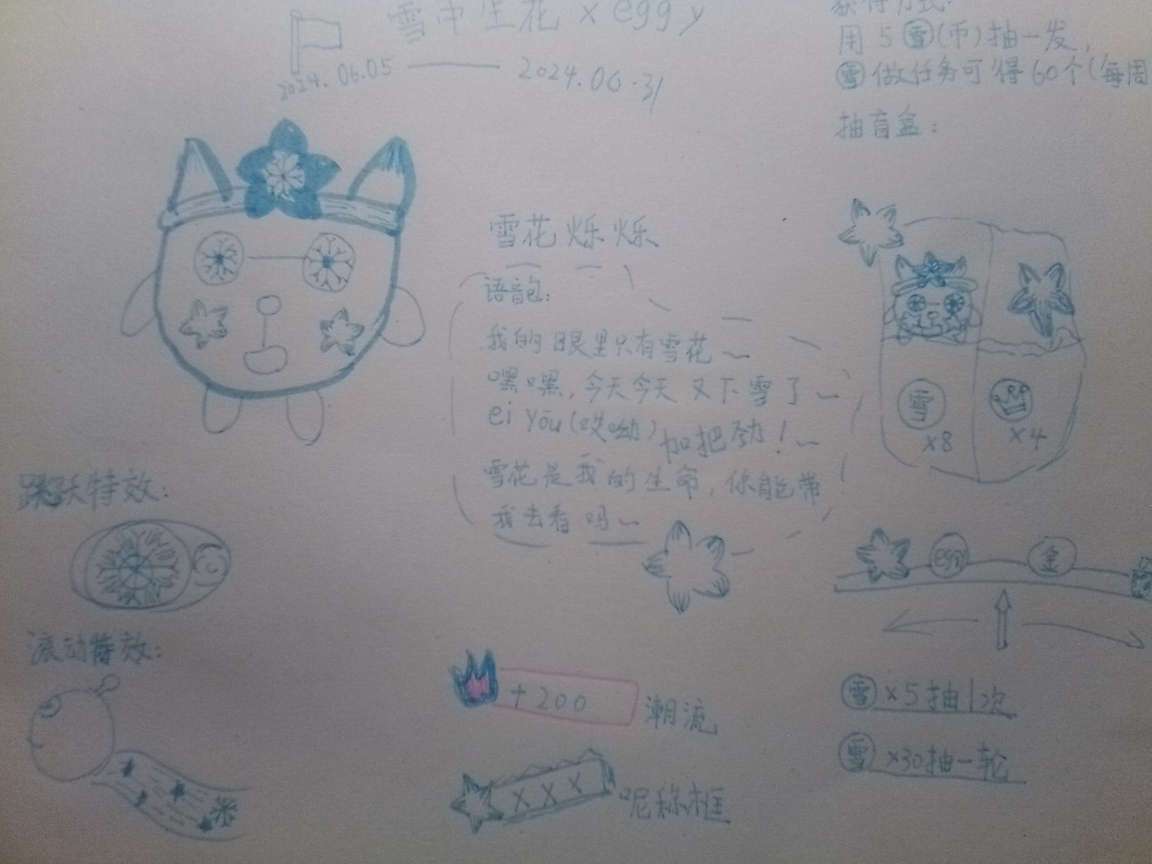 雪中生花 x eggy
2024.06.05 —— 2024.06.31
用 5 雪(币)抽一发,
雪 做任务可得60个(每周
抽盲盒:
雪花烁烁
语音包:
我的眼里只有雪花~
嘿嘿,今天今天又下雪了~
ei yōu(哎呦)加把劲!~
雪花是我的生命,你能带
我去看吗~
雪 x8
x4
跳跃特效:
egg
金
滚动特效:
+200 潮流
x x x 呢称框
雪 x5抽1次
雪 x30抽一轮